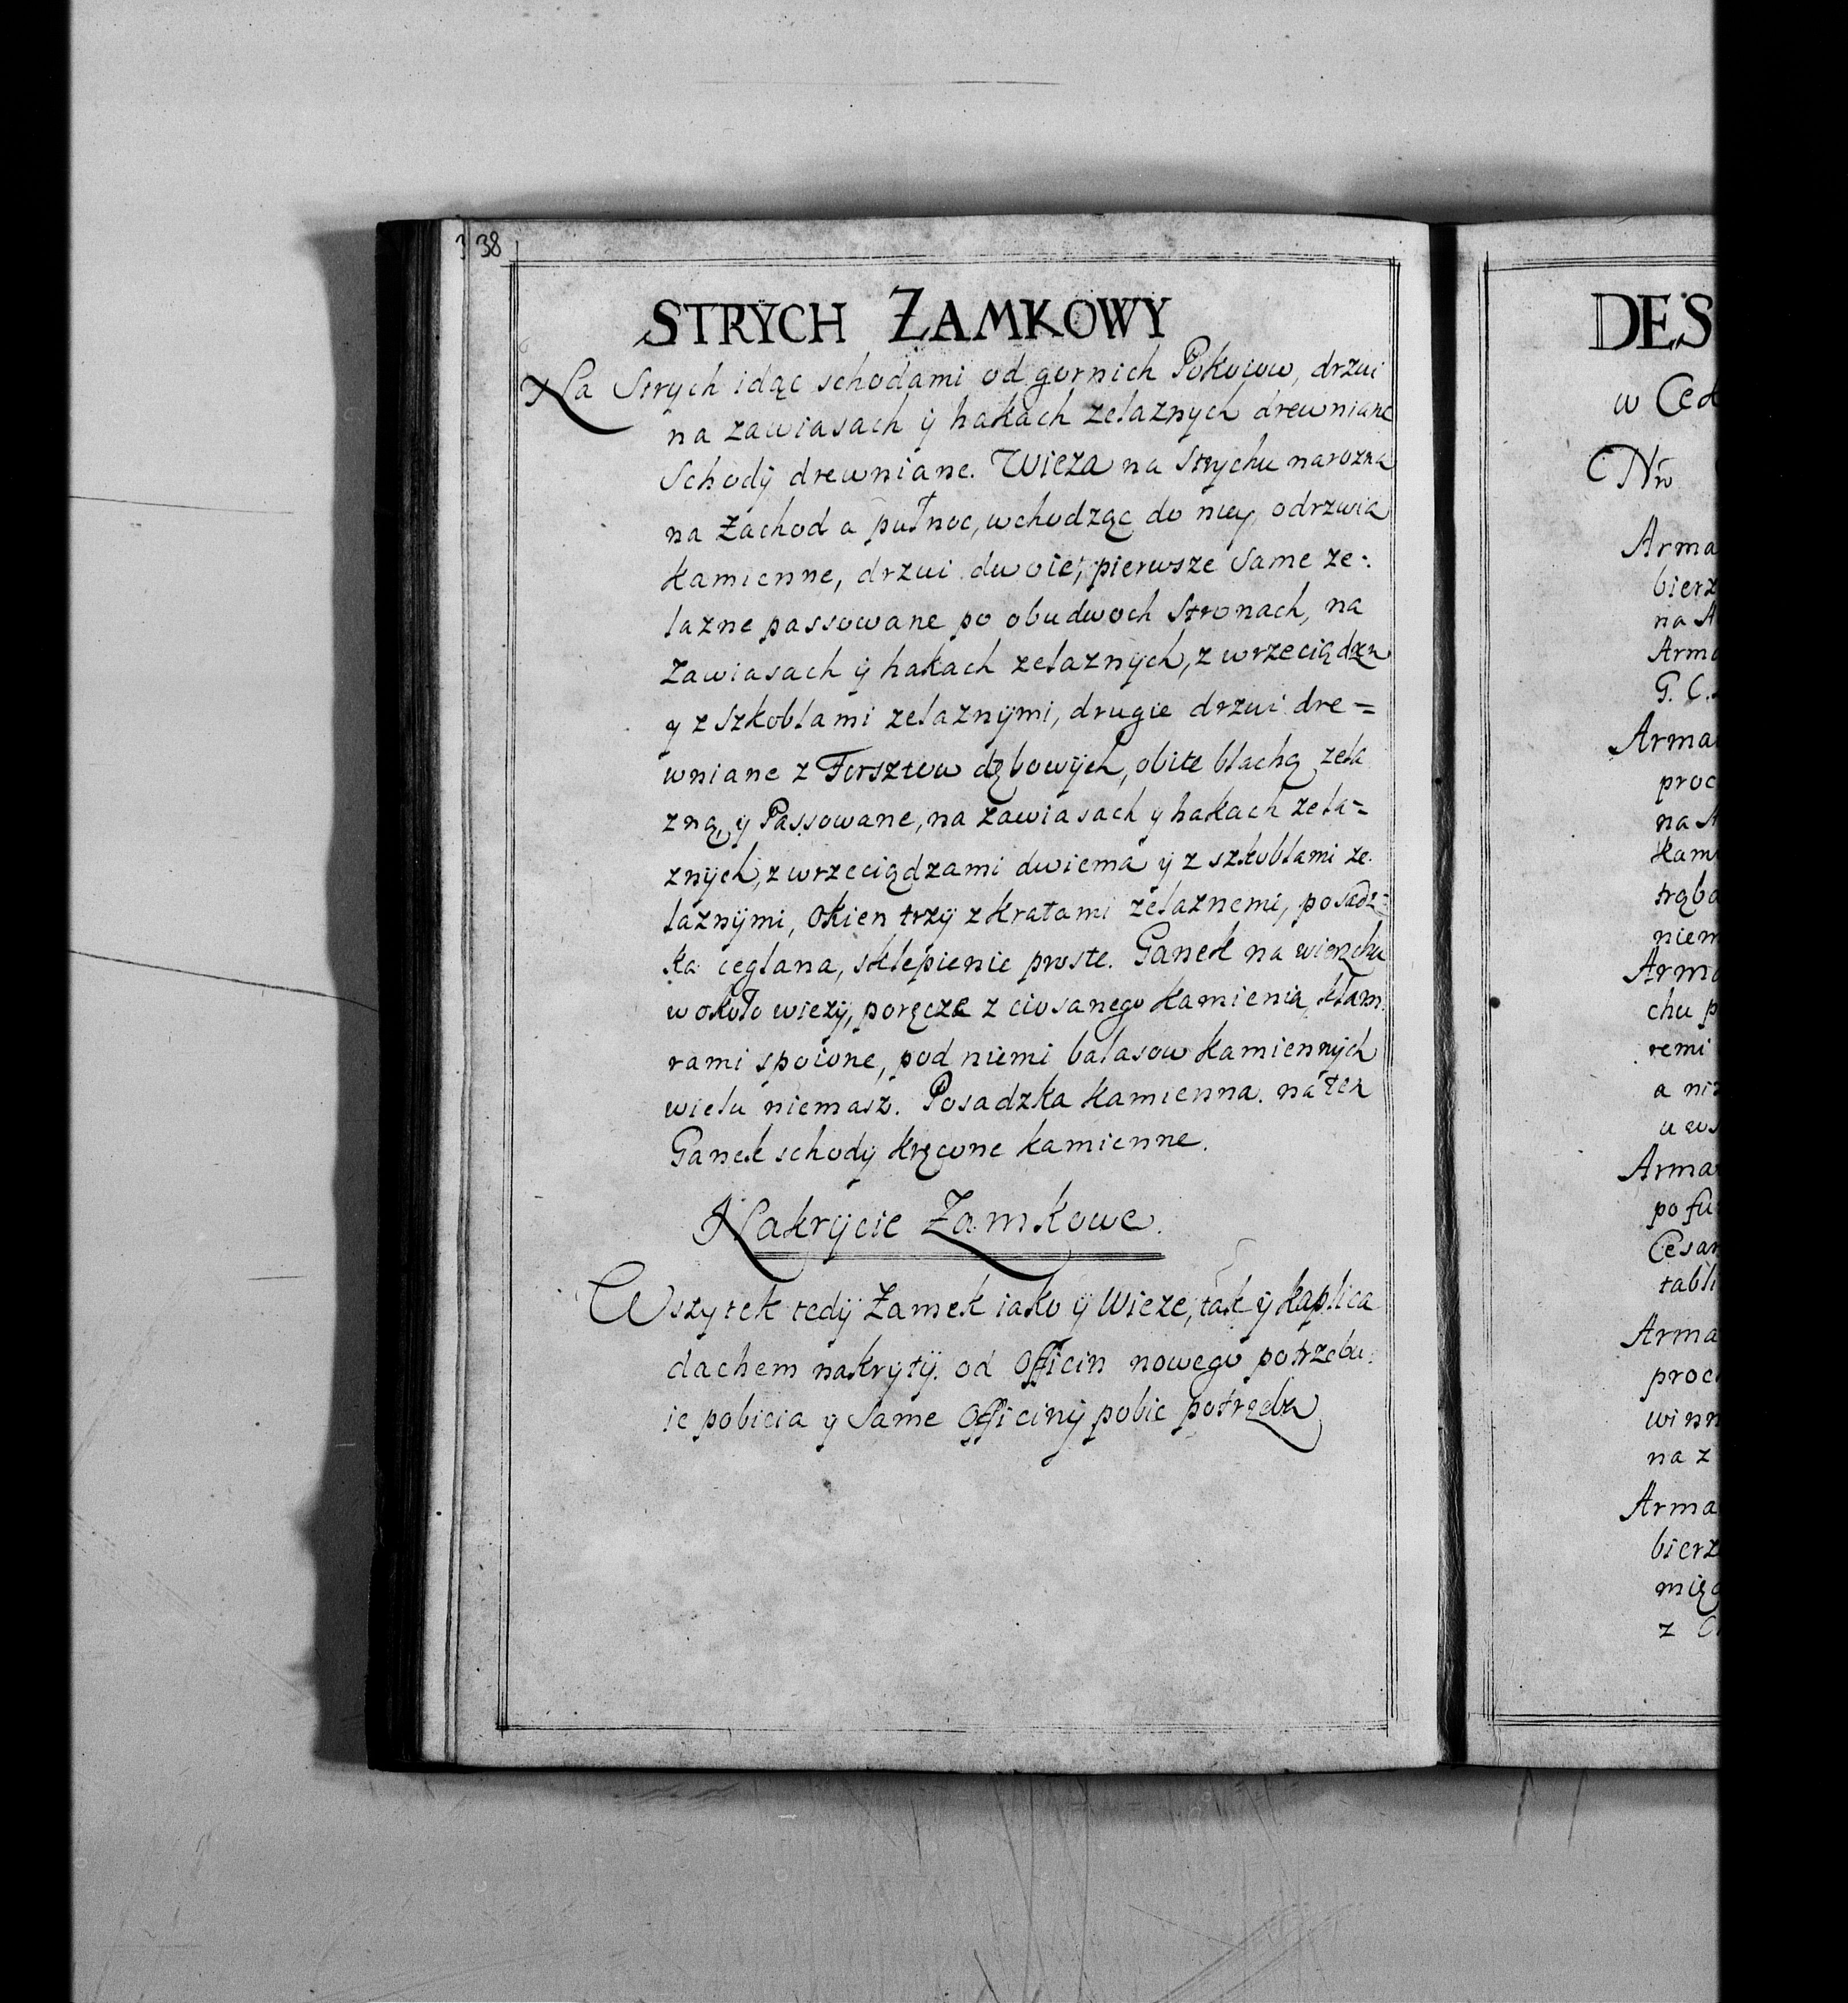 38
STRYCH ZAMKOWY
Na Strych idąc schodami od gornich Pokoiow, drzwi
na zawiasach ÿ hakach zelaznych drewniane
Schodÿ drewniane. Wieza na Strychu narozna
na Zachod a pułnoc, wchodząc do niey, odrzwia
kamienne, drzwi dwoie, pierwsze Same ze:
lazne passowane po obudwoch Stronach, na
Zawiasach ÿ hakach zelaznÿch, z wrzeciądzem
y z szkoblami zelaznÿmi, drugie drzwi dre=
wniane z Forsztow dębowÿch, obite blachą zela
zną, ÿ Passowane, na zawiasach y hakach zela=
znÿch, z wrzeciądzami dwiema ÿ z szkoblami ze
laznÿmi, Okien trzÿ z kratami zelaznemi, posadz=
ka ceglana, sklepienie proste. Ganek na wierzchu
w około wiezÿ, poręcze z ciosanego kamienia, klam
rami spoione, pod niemi balasow kamiennÿch
wielu niemasz. Posadzka kamienna. na ten
Ganek schody kręcone kamienne.
Nakrÿcie Zamkowe.
Wszytek tedÿ Zamek iako ÿ Wieze, tak ÿ kaplica
dachem nakrytÿ. od Officin nowego potrzebu:
ie pobicia y Same Officinÿ pobic potrzeba
DES
w Ced
Nro
Arma
bierz
na A
Arma
G. C.
Arma
proc
na A
kam
trąbo
niem
Arma
chu p
remi
a niz
u ws
Arma
po fu
Cesar
tabli
Arma
proc
winn
na z
Arma
bierz
międ
z